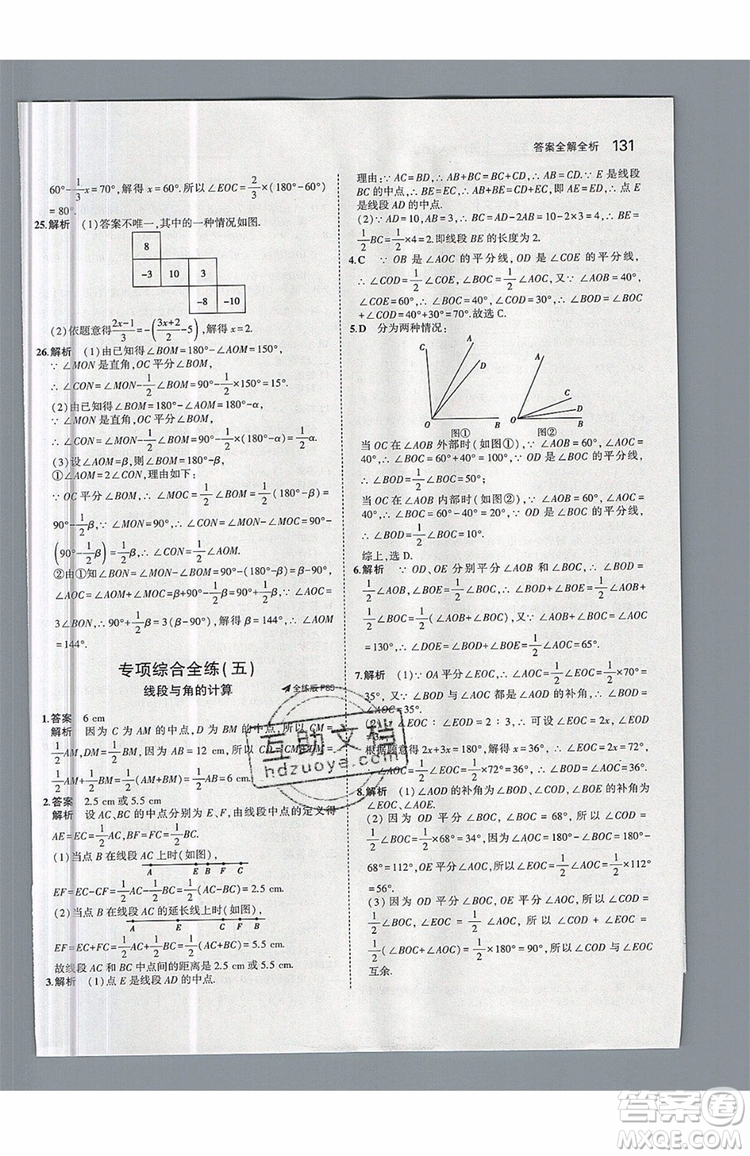 答案全解全析 131
60°-1/3x=70°,解得 x=60°.所以∠EOC=2/3x=2/3×60°
=80°.
25.解析 (1)答案不唯一,其中的一种情况如图.
8
-3 10 3
-8 -10
(2)依题意得(2x-1)/3=-((3x+2)/2-5),解得 x=
26.解析 (1)由已知得∠BOM=180°-∠AOM=150°,
∵∠MON 是直角,OC 平分∠BOM,
∴∠CON=∠MON-1/2∠BOM=90°-1/2×150°=15°.
(2)由已知得∠BOM=180°-∠AOM=180°-α,
∵∠MON 是直角,OC 平分∠BOM,
∴∠CON=∠MON-1/2∠BOM=90°-1/2×(180°-α)=1/2α.
(3)设∠AOM=β,则∠BOM=180°-β,
①∠AOM=2∠CON,理由如下:
∵OC 平分∠BOM,∴∠MOC=1/2∠BOM=1/2(180°-β)=
90°-1/2β,∵∠MON=90°,∴∠CON=∠MON-∠MOC=90°-
(90°-1/2β)=1/2β,∴∠AOM=2∠CON.
②由①知∠BON=∠MON-∠BOM=90°-(180°-β)=β-90°,
∠AOC=∠AOM+∠MOC=β+90°-1/2β=90°+1/2β,∵∠AOC=
3∠BON,∴90°+1/2β=3(β-90°),解得 β=144°,∴∠AOM
=144°.
专项综合全练(五)
线段与角的计算
全练版 P85
1.答案 6 cm
解析 因为 C 为 AM 的中点,D 为 BM 的中点,所以 CM=
1/2AM,DM=1/2BM,因为 AB=12 cm,所以 CD=CM+DM=
1/2AM+1/2BM=1/2(AM+BM)=1/2AB=6(cm).
2.答案 2.5 cm 或5.5 cm
解析 设 AC 和 BC 的中点分别为 E、F,由线段中点的定义得
AE=EC=1/2AC,BF=FC=1/2BC.
(1)当点 B 在线段 AC 上时(如图),
A E B F C
EF=EC-FC=1/2AC-1/2BC=2.5 cm.
(2)当点 B 在线段 AC 的延长线上时(如图),
A E C F B
EF=EC+FC=1/2AC+1/2BC=5.5 cm.
故线段 AC 和 BC 中点间的距离为 2.5 cm 或 5.5 cm.
3.解析 (1)点 E 是线段 AD 的中点.
理由:∵AC=BD,∴AB+BC=BC+CD,∴AB=CD.∵E 是线段
BC 的中点,∴BE=EC,∴AB+BE=CD+EC,即 AE=ED,∴点
E 是线段 AD 的中点.
(2)∵AD=10,AB=3,∴BC=AD-2AB=10-2×3=4,∴BE=
1/2BC=1/2×4=2.即线段 BE 的长度为 2.
4.C ∵OB 是∠AOC 的平分线,OD 是∠COE 的平分线,
∴∠COD=1/2∠COE,∠BOC=1/2∠AOB=40°,又∵∠COE=60°,
∴∠COD=1/2∠COE=1/2×60°=30°,∴∠BOD=∠BOC+
∠COD=40°+30°=70°.故选 C.
5.D 分为两种情况:
C A D O B
图①
图②
当 OC 在∠AOB 外部时(如图①),∵∠AOB=60°,∠BOC=
40°,∴∠AOC=60°+40°=100°,∵OD 是∠AOC 的平分线,
∴∠COD=1/2∠AOC=50°;
当 OC 在∠AOB 内部时(如图②),∵∠AOB=60°,∠BOC=
40°,∴∠AOC=60°-40°=20°,∵OD 是∠AOC 的平分线,
∴∠COD=1/2∠AOC=10°.
综上,选 D.
6.解析 ∵OD、OE 分别平分∠AOB 和∠BOC,∴∠EOD=
1/2∠AOB+1/2∠BOC=1/2(∠AOB+∠BOC)=65°,又∵∠AOB+
∠BOC=∠AOC,∴1/2∠AOC=65°,∴∠AOC=∠AOB+∠BOC
=130°,∴∠BOC=130°-∠AOB=130°-50°=80°.
7.解析 (1)∵OA 平分∠EOC,∠EOC=70°,∴∠AOC=
35°,又∵∠BOD 与∠AOC 都是∠AOD 的补角,∴∠BOD=∠AOC=
35°.
(2)∵∠EOC:∠EOD=2:3,∴可设∠EOC=2x,∠EOD=
3x.
根据题意得 2x+3x=180°,解得 x=36°,∴∠EOC=2x=72°,
∵OA 平分∠EOC,∴∠AOC=1/2∠EOC=36°,∴∠BOD=36°.
8.解析 (1)∠AOD 的补角为∠BOD、∠COD.
(2)因为 OD 平分∠BOC,所以∠COD=∠BOD,
∠COD=1/2∠BOC=1/2×68°=34°,因为∠AOC=180°-∠BOC=180°-
68°=112°,OE 平分∠AOC,所以∠EOC=1/2∠AOC=1/2×112°
=56°.
(3)因为 OD 平分∠BOC,OE 平分∠AOC,所以∠COD=
1/2∠BOC,∠EOC=1/2∠AOC,所以∠COD+∠EOC=
1/2(∠BOC+∠AOC)=1/2×180°=90°,所以∠COD 与∠EOC
互余.
互助文档
hdzuoye.com
答案圈
MXQE.COM